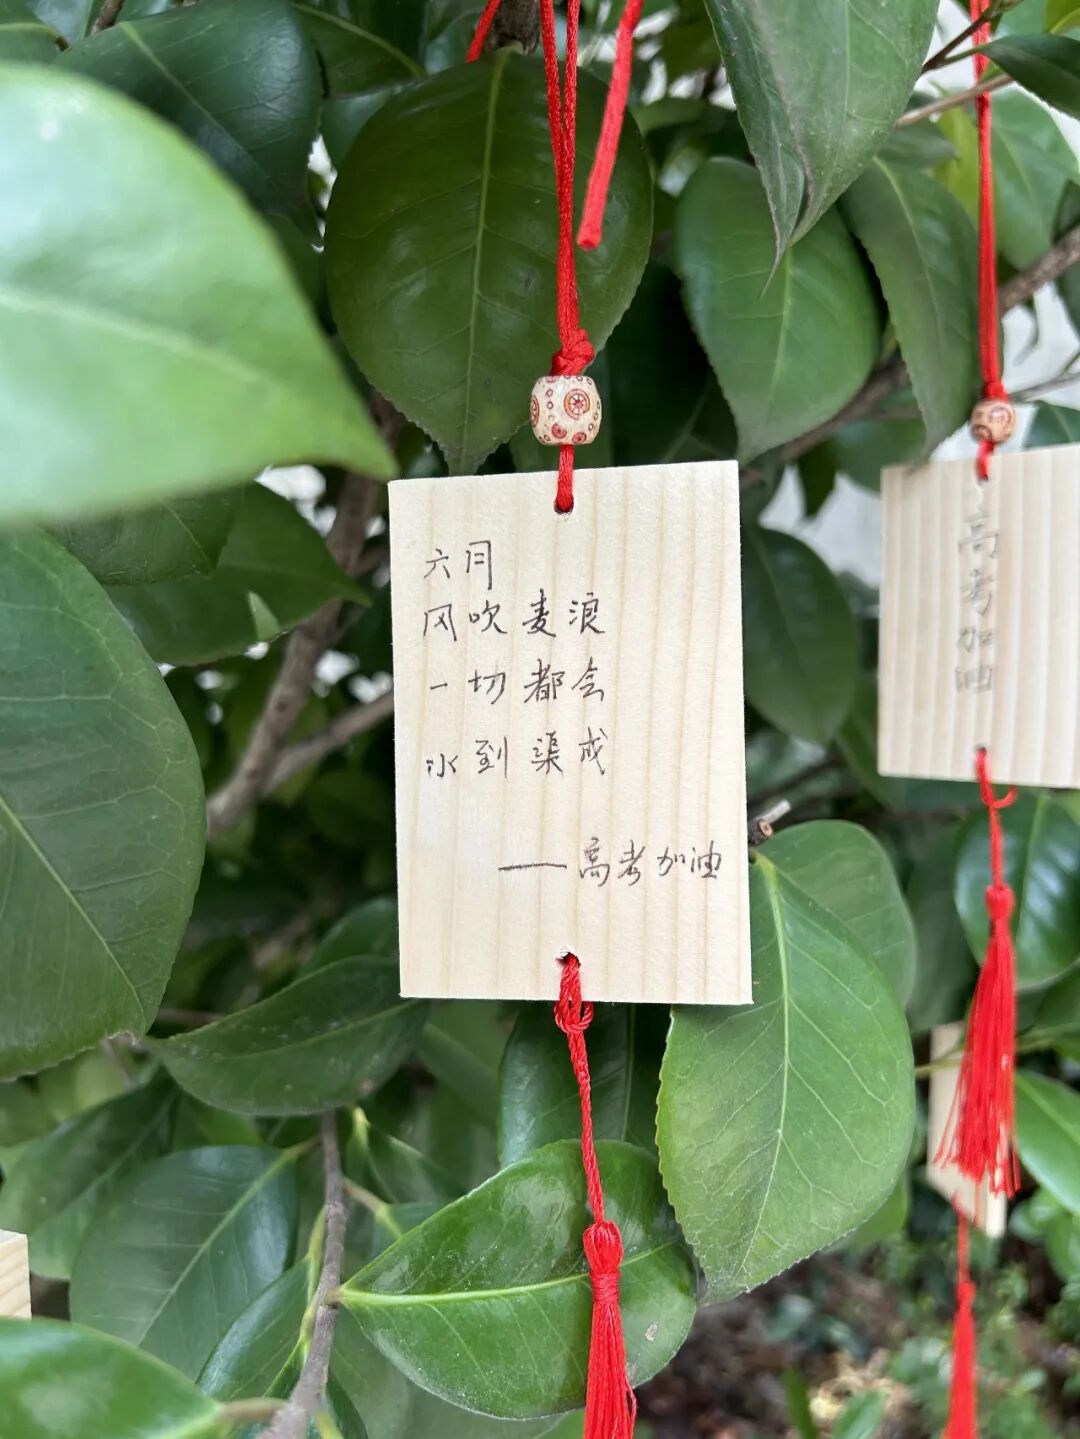 六月
风吹麦浪
一切都会
水到渠成
——高考加油
高考加油